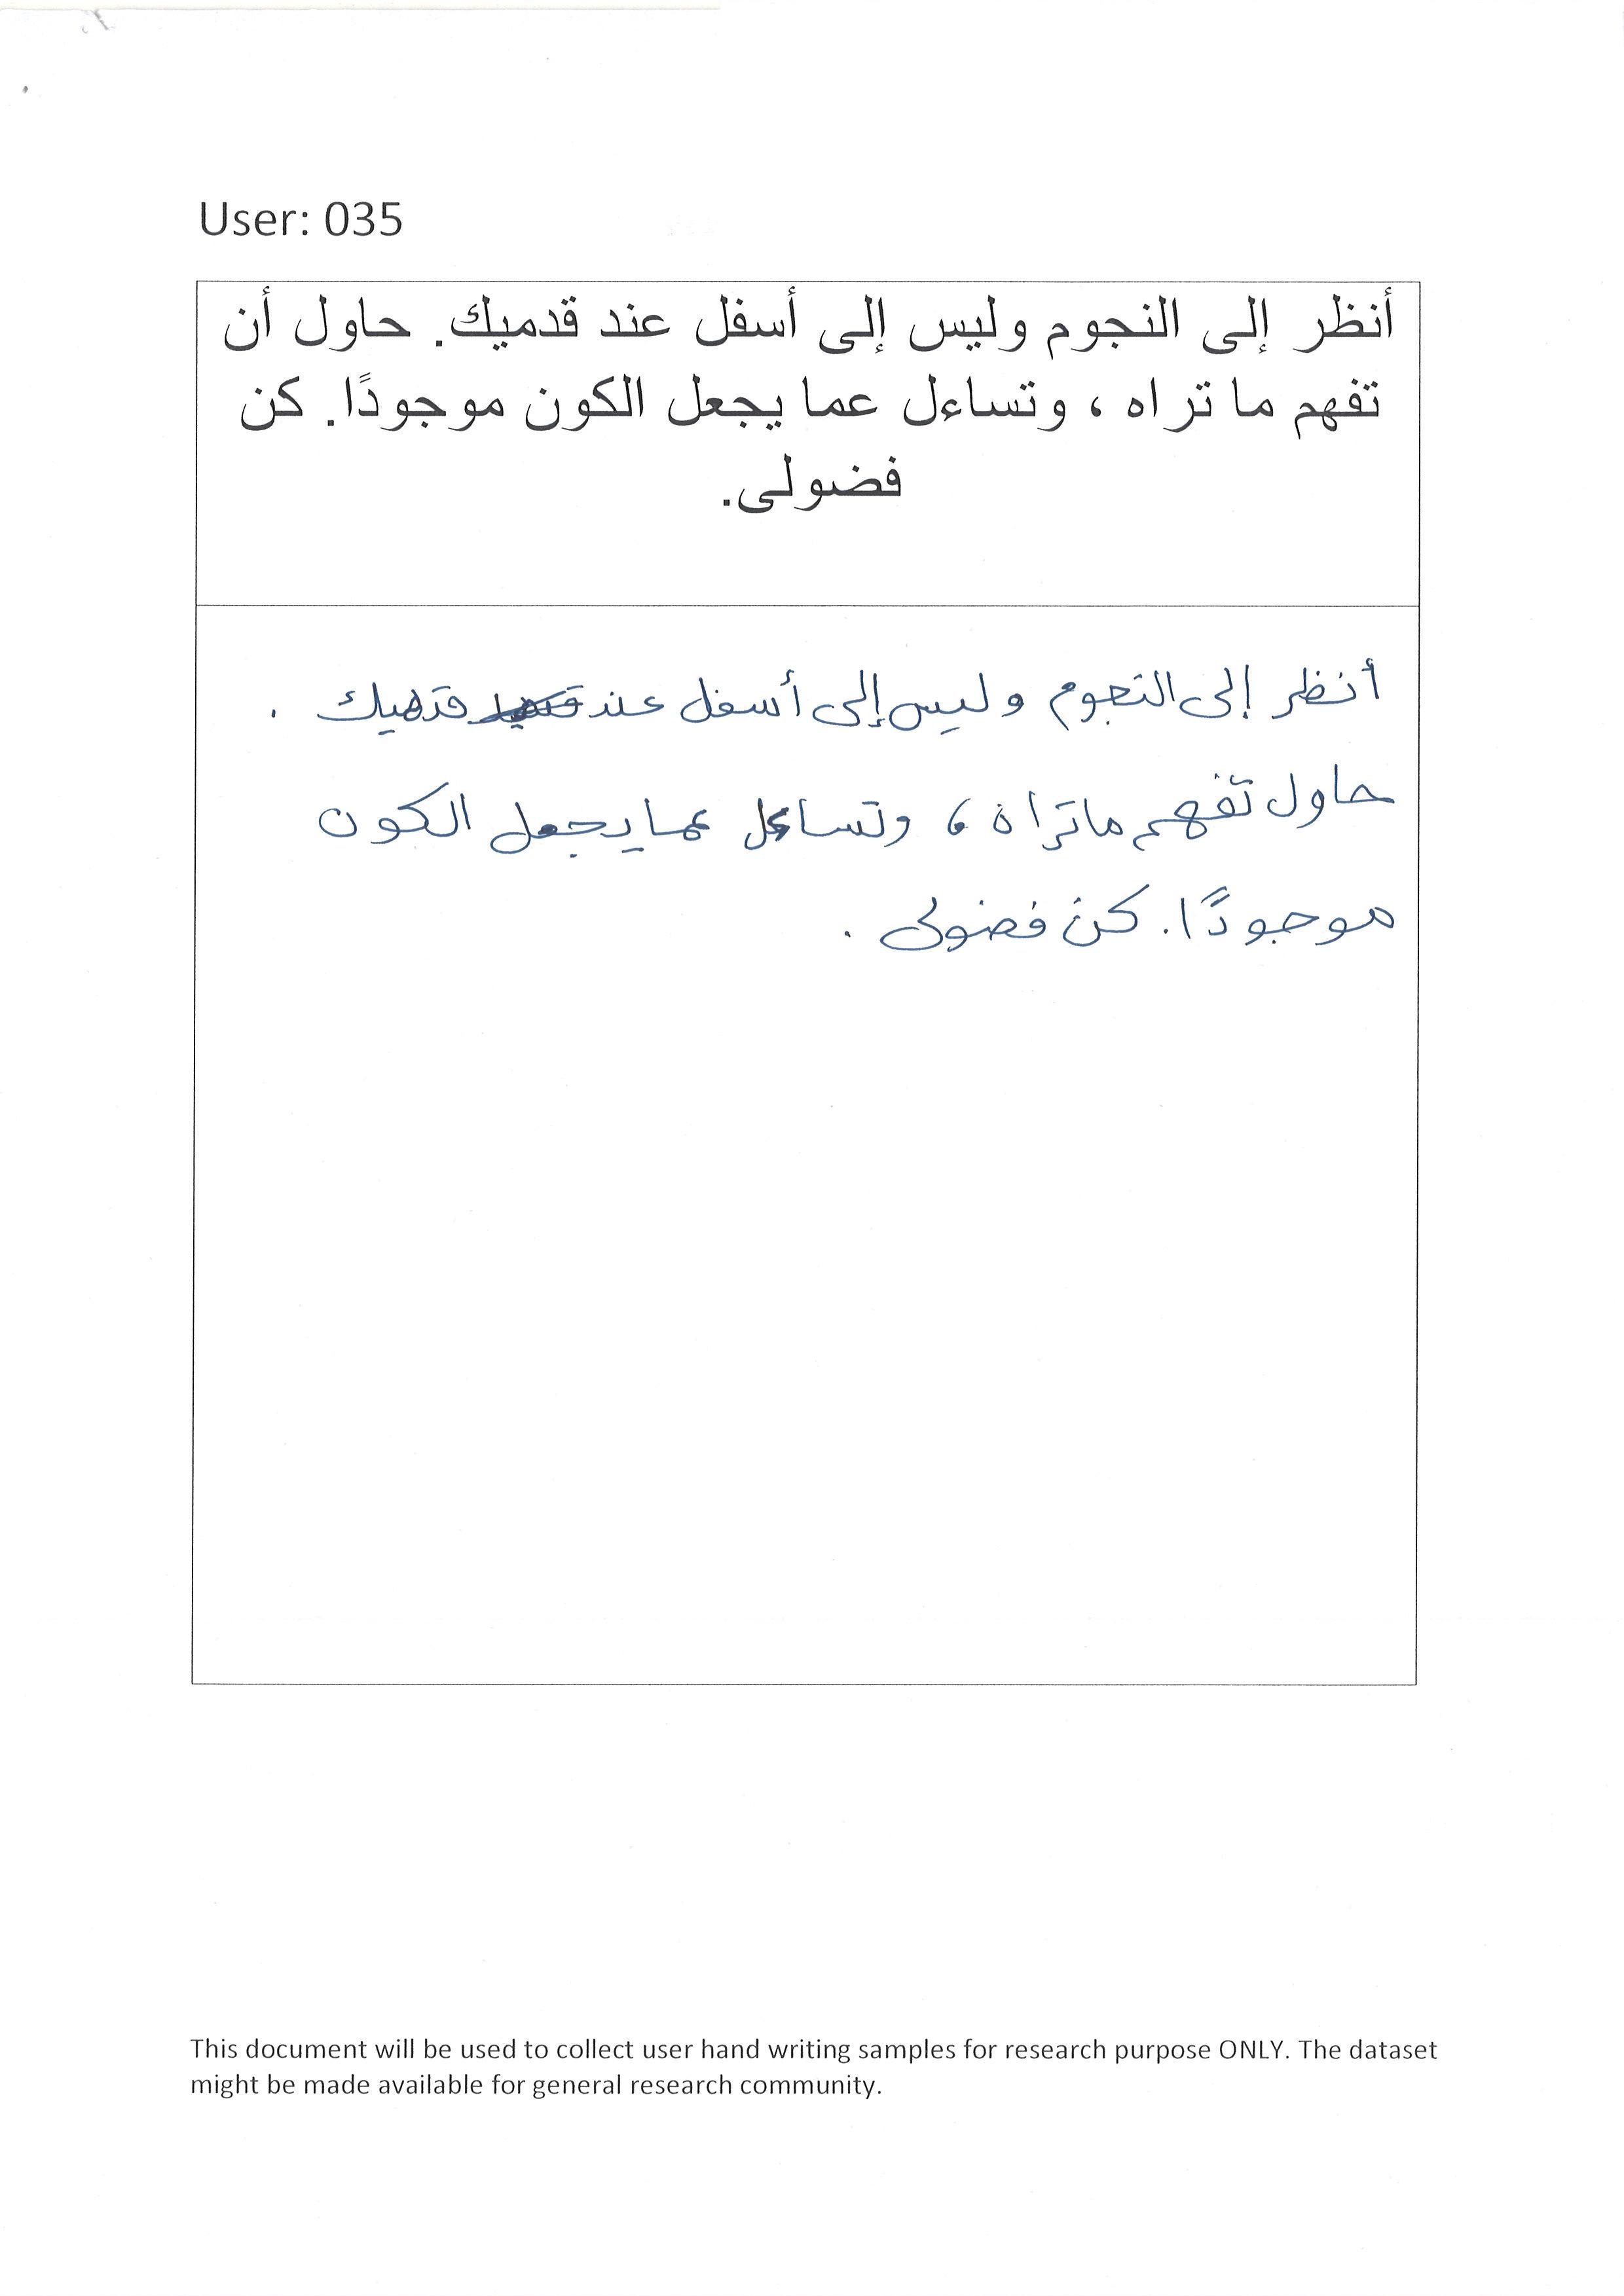 User: 035
أنظر إلى النجوم وليس إلى أسفل عند قدميك. حاول أن
تفهم ما تراه ، وتساءل عما يجعل الكون موجودًا. كن
فضولى.
أنظر إلى النجوم وليس إلى أسفل عند قدميك .
حاول تفهم ماتراه ، وتساءل عما يجعل الكون
موجودًا. كن فضولى .
This document will be used to collect user hand writing samples for research purpose ONLY. The dataset
might be made available for general research community.